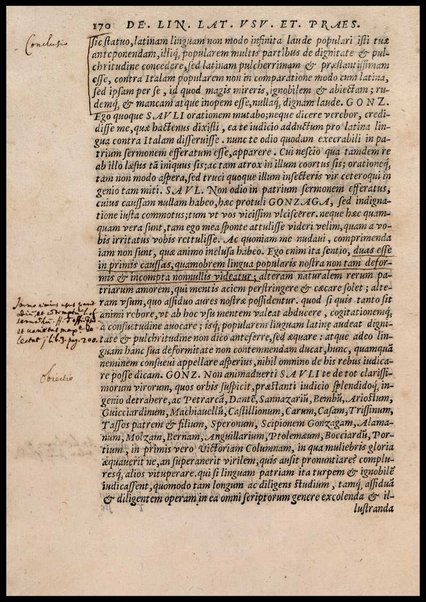 170 DE. LIN. LAT. VSV. ET. PRAES.
Conclusio
sic statuo, latinam linguam non modo infinita laude populari isti tuæ
anteponendam, illiq́; popularem multis partibus de dignitate & pul-
chritudine concedere, sed latinam pulcherrimam & præstantissimam
esse, contra Italam popularem non in comparatione modo cum latina,
sed ipsam per se, id quod magis mireris, ignobilem & abiectam; ru-
demq́; & mancam atque inopem esse, nullaq́; dignam laude. GONZ.
Ego quoque SAVLI orationem mutabo; neque dicere verebor, credi-
disse me, quæ hactenus dixisti, ea te iudicio adductum pro latina lin-
gua contra Italam disseruisse. nunc te odio quodam execrabili in pa-
trium sermonem efferatum esse, apparere. Cui nescio qua tandem re
ab illo læsus tã iniquus sis; ac tam atrox in illum coortus sis; orationeq́;
tam non modo aspera, sed truci quoque illum insecteris vir ceteroqui in
genio tam miti. SAVL. Non odio in patrium sermonem efferatus,
cuius caussam nullam habeo, hæc protuli GONZAGA, sed indigna-
tione iusta commotus; tum vt vos vicissim vlciscerer. neque hæc quam-
quam vera sunt, tam ego mea sponte attulisse videri velim, quam a vo-
bis irritatus vobis rettulisse. Ac quoniam me nudaui, comprimenda
iam non sunt, quæ animo inclusa habeo. Ego enim ita sentio, duas esse
in primis caussas, quamobrem lingua popularis nostra non tam defor-
mis & incompta nonnullis videatur; alteram naturalem rerum pa-
triarum amorem, qui mentis aciem perstringere & cæcare solet; alte-
ram vsum, quo assiduo aures nostræ possidentur. quod si quis tanto sit
animi robore, vt ab hoc vsu mentem valeat abducere, cogitationemq́;
a consuetudine auocare; isq́; popularem linguam latinæ audeat dignita-
te & pulchritudine non dico anteferre, sed æquare: atque adeo lin-
guam hanc sua deformitate non contemnendam ducat, hunc, quamquã
neminem consueui appellare asperius, nihil omnino de his rebus indica-
re posse dicam. GONZ. Non animaduerti SAVLI te de tot clarissi-
morum virorum, quos orbis suspicit, præstanti iudicio splendidoq́; in-
genio detrahere, ac Petrarcã, Dantẽ, Sannazariũ, Bembũ, Ariostum,
Guicciardinum, Machiauellũ, Castillionum, Carum, Casam, Trissinum,
Tassos patrem & filium, Speronum, Scipionem Gonzagam, Alama-
num, Molzam, Bernam, Anguillarium, Ptolemæum, Bocciardũ, Por-
tium, in primis vero Victoriam Columnam, in qua muliebris gloria
æquauerit ne, an superauerit virilem, quis ausit pronuntiare? complu-
resq́; alios vituperare. qui si linguam patriam ita turpem & ignobilẽ
iudicassent, quomodo tam longum ac diligens studium, tamq́; assiduã
& diligentem operam in ea omni scriptorum genere excolenda & il-
lustranda